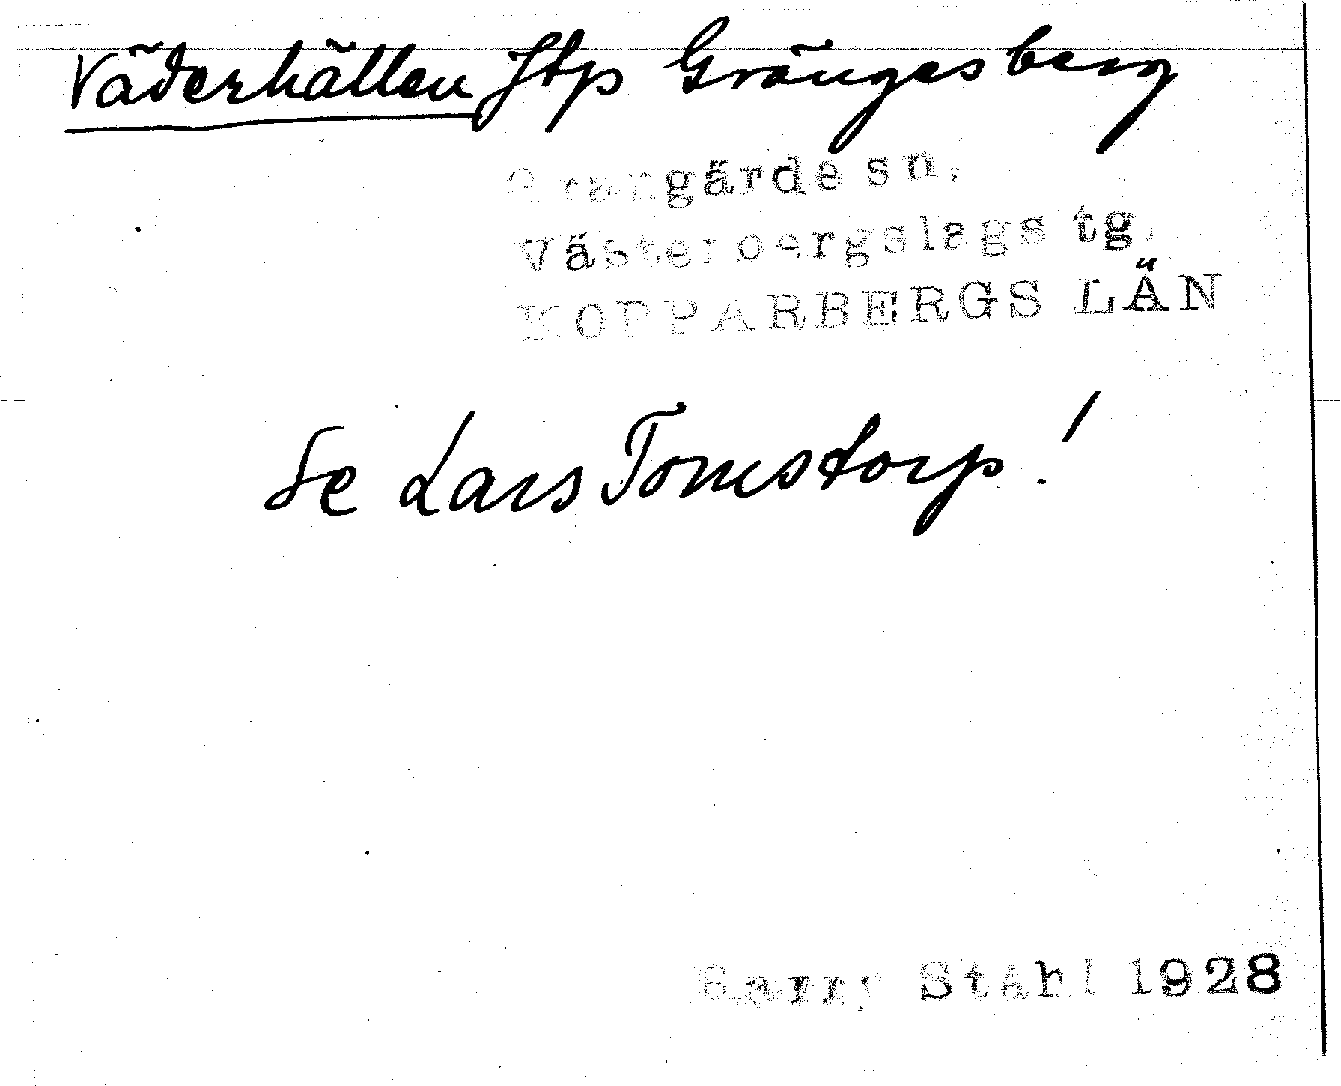 Väderhällen Jtp Grängesberg
Grangärde sn.
Västerbergslags tg.
KOPPARBERGS LÄN
Se Lars Tomstorp!
Harry Ståhl 1928